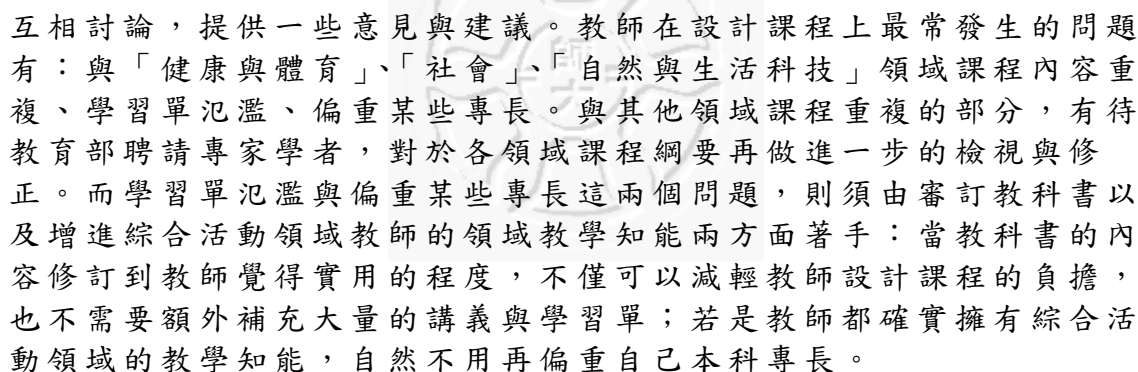 互相討論，提供一些意見與建議。教師在設計課程上最常發生的問題
有：與「健康與體育」、「社會」、「自然與生活科技」領域課程內容重
複、學習單氾濫、偏重某些專長。與其他領域課程重複的部分，有待
教育部聘請專家學者，對於各領域課程綱要再做進一步的檢視與修
正。而學習單氾濫與偏重某些專長這兩個問題，則須由審訂教科書以
及增進綜合活動領域教師的領域教學知能兩方面著手：當教科書的內
容修訂到教師覺得實用的程度，不僅可以減輕教師設計課程的負擔，
也不需要額外補充大量的講義與學習單；若是教師都確實擁有綜合活
動領域的教學知能，自然不用再偏重自己本科專長。